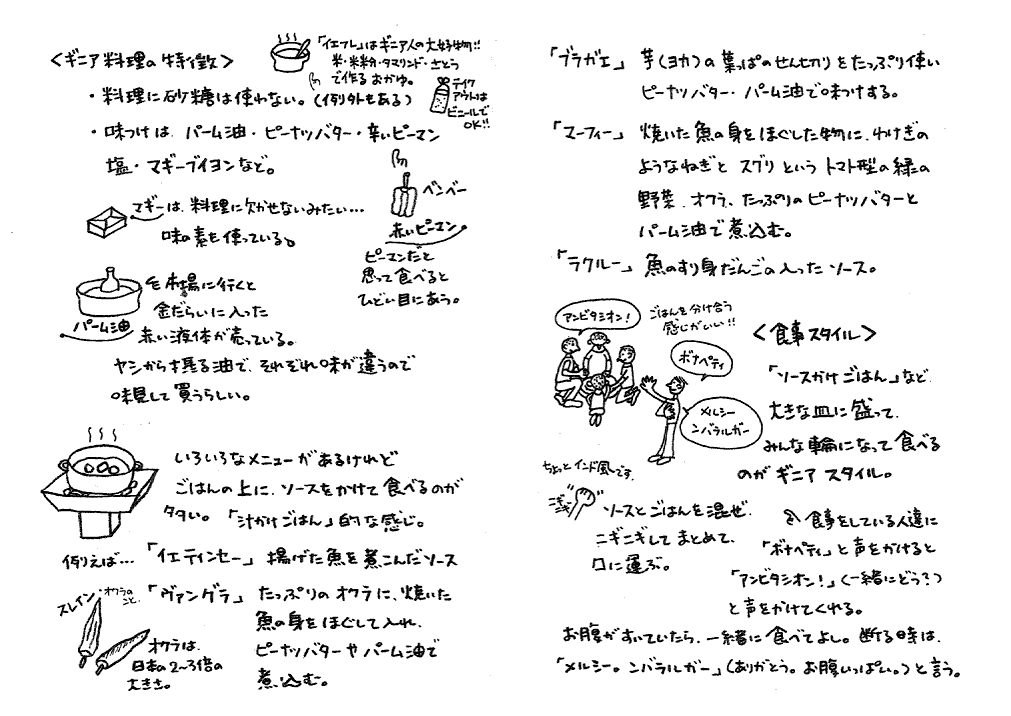 <ギニア料理の特徴>
「イエフレ」はギニア人の大好物!!
米・米粉・タマリンド・さとう
で作るおかゆ。
テイク
アウトは
ビニールで
OK!!
・料理に砂糖は使わない。(例外もある)
・味つけは、パーム油・ピーナッツバター・辛いピーマン
塩・マギーブイヨンなど。
マギーは、料理に欠かせないみたい…
味の素も使っている。
ベンベー
赤いピーマン
ピーマンだと
思って食べると
ひどい目にあう。
市場に行くと
金だらいに入った
パーム油
赤い液体が売っている。
ヤシから採る油で、それぞれ味が違うので
味見して買うらしい。
いろいろなメニューがあるけれど
ごはんの上に、ソースをかけて食べるのが
多い。「汁かけごはん」的な感じ。
例えば…「イエテインセー」揚げた魚を煮こんだソース
スレイン・オクラの
こと。
「ヴァングラ」たっぷりのオクラに、焼いた
魚の身をほぐして入れ、
ピーナッツバターやパーム油で
煮込む。
オクラは、
日本の2~3倍の
大きさ。
「ブラガエ」芋(ヨカ)の葉っぱのせん切りをたっぷり使い
ピーナッツバター・パーム油で味つけする。
「マーフィー」焼いた魚の身をほぐした物に、わけぎの
ようなねぎとスグリというトマト型の緑の
野菜、オクラ、たっぷりのピーナッツバターと
パーム油で煮込む。
「ラクルー」魚のすり身だんごの入ったソース。
アンビタシオン!
ごはんを分け合う
感じがいい!!
ボナペティ
メルシー
ンバラルガー
<食事スタイル>
「ソースかけごはん」など
大きな皿に盛って、
みんな輪になって食べる
のがギニアスタイル。
ちょっとインド風です。
ニギニギ
ソースとごはんを混ぜ、
ニギニギしてまとめて、
口に運ぶ。
食事をしている人達に
「ボナペティ」と声をかけると
「アンビタシオン!」(一緒にどう?)
と声をかけてくれる。
お腹がすいていたら、一緒に食べてよし。断る時は、
「メルシー。ンバラルガー」(ありがとう。お腹いっぱい。)と言う。